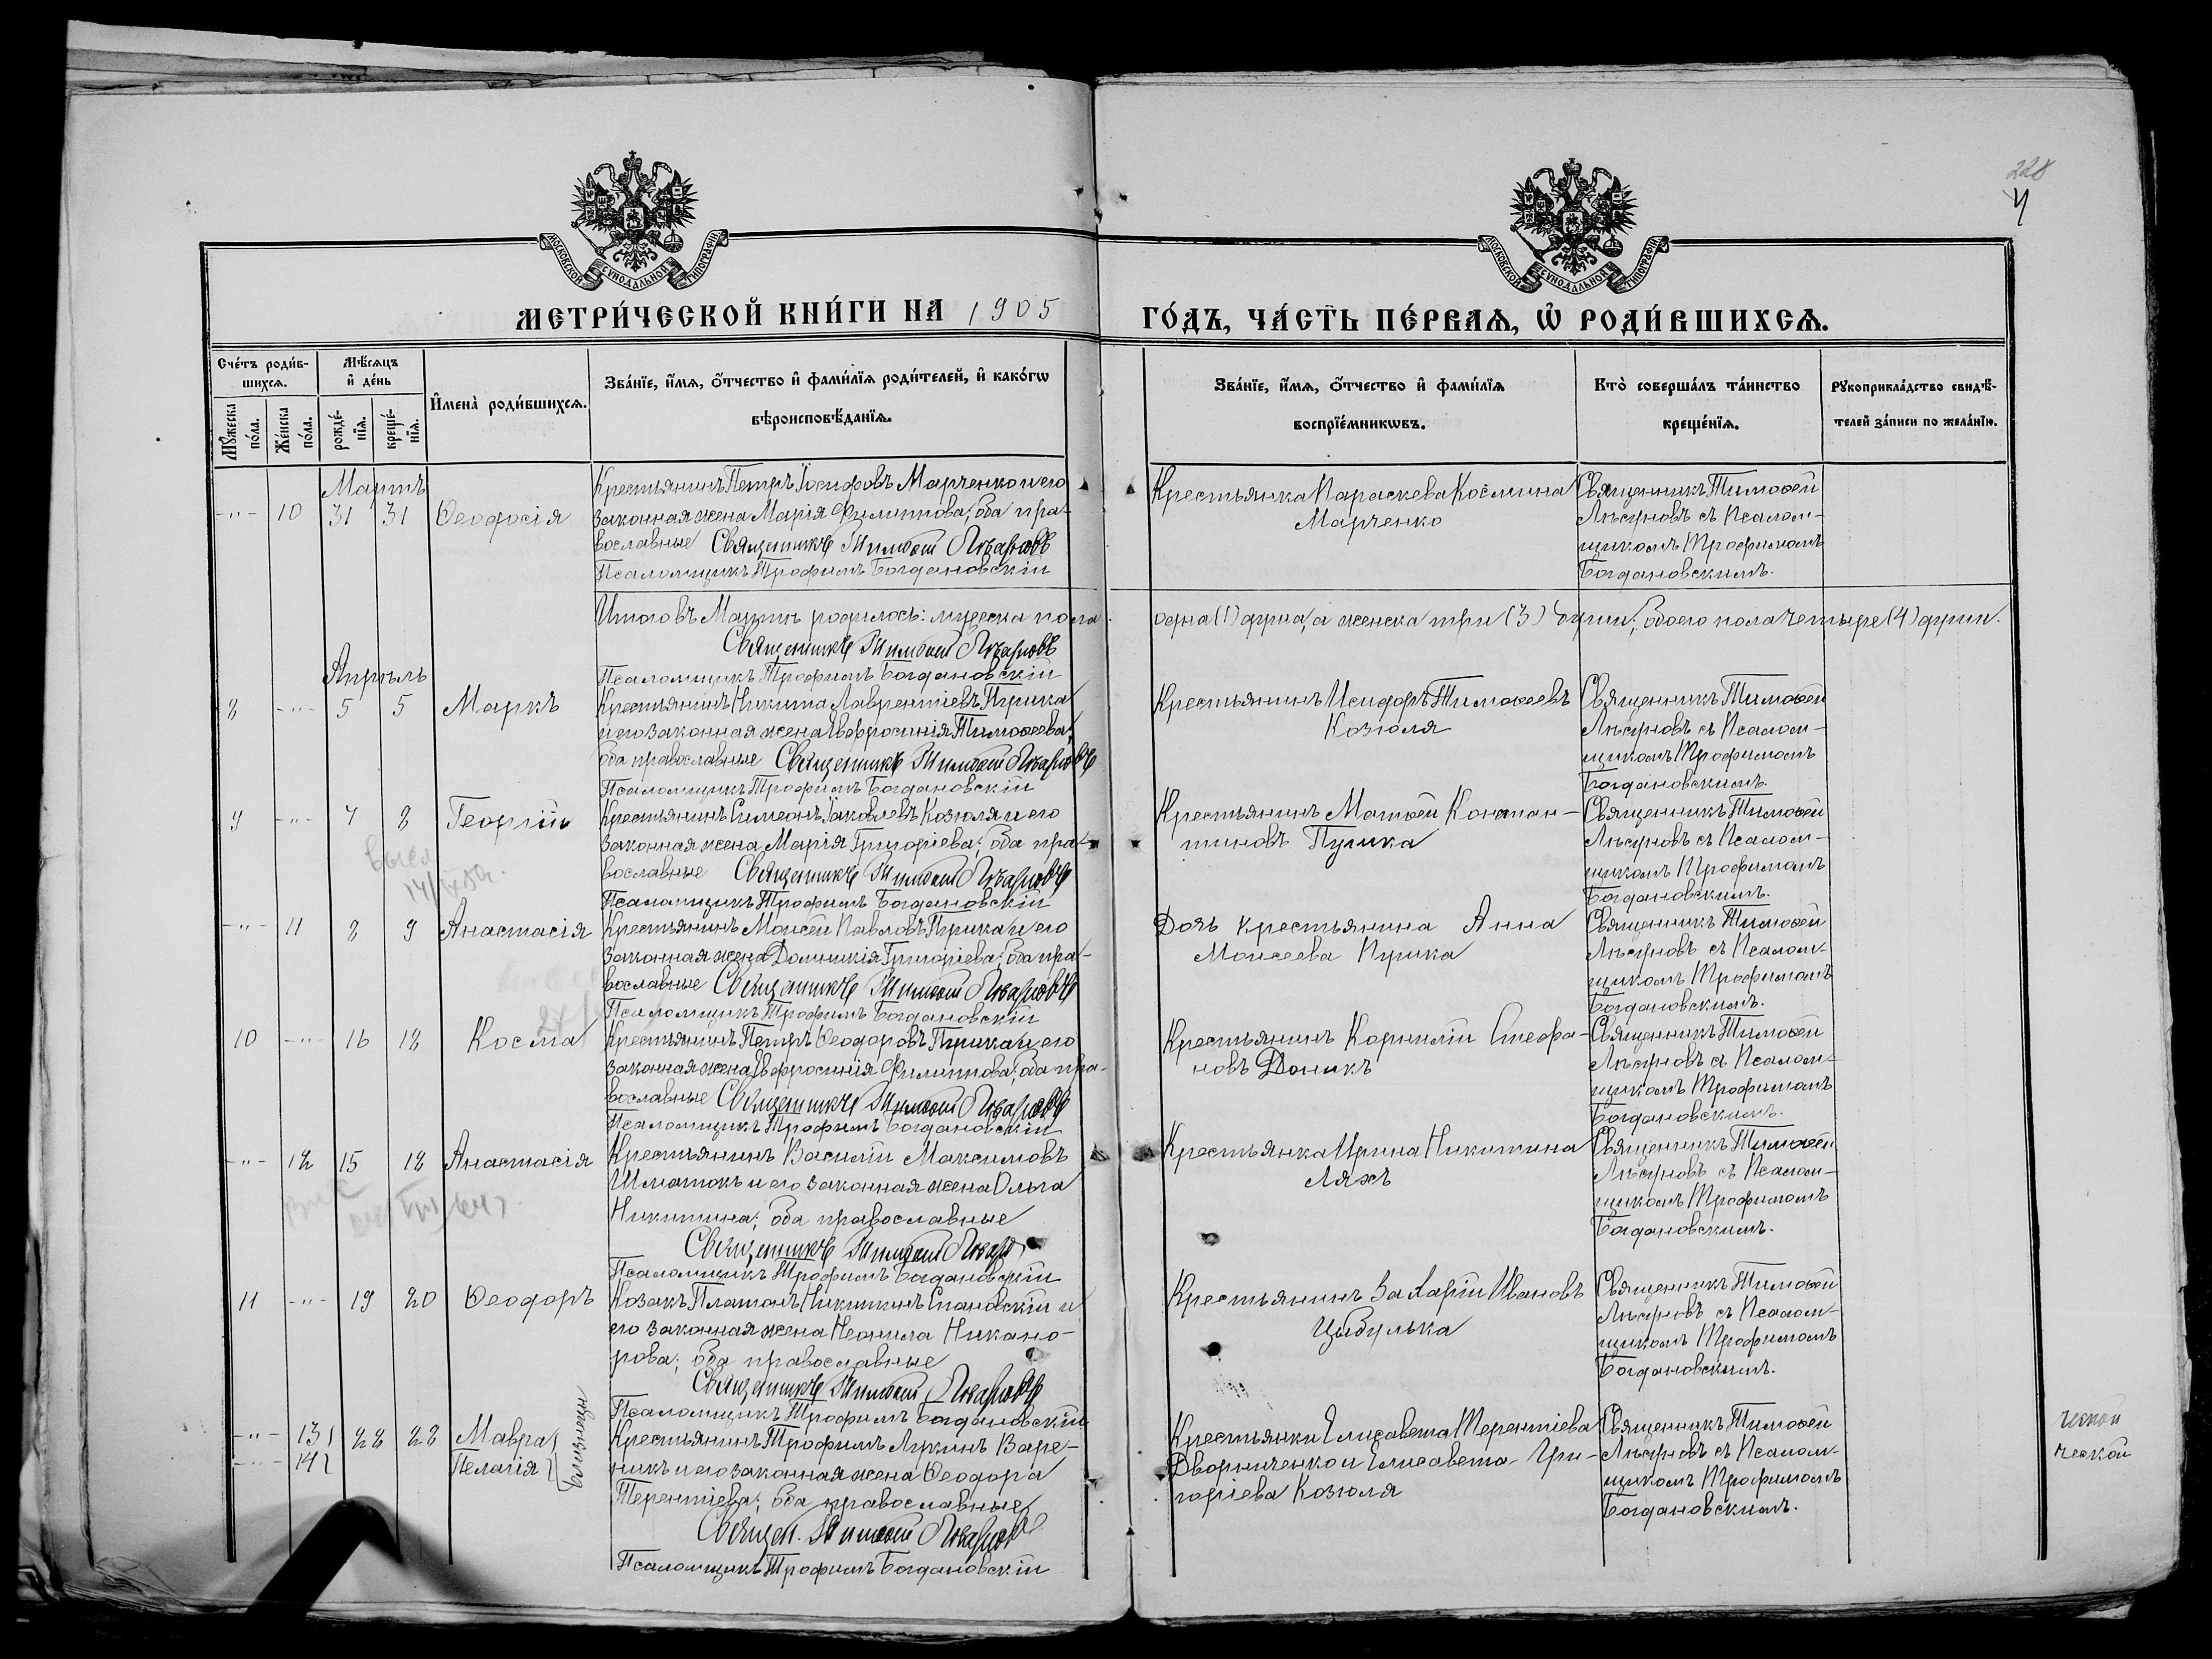 228
4
МОСКОВСКОЙ СѴНОДАЛЬНОЙ ТИПОГРАФІИ
МОСКОВСКОЙ СѴНОДАЛЬНОЙ ТИПОГРАФІИ
МЕТРИ́ЧЕСКОЙ КНИ́ГИ НА 1905
ГО́ДЪ, ЧА́СТЬ ПЕ́РВАѦ, Ѡ҆ РОДИ́ВШИХСѦ.
Сче́тъ роди́в-
шихсѧ.
Мꙋ́жеска
по́ла.
Же́нска
по́ла.
Мѣ́сѧцъ
и҆ де́нь
рожде́-
нїѧ.
креще́-
нїѧ.
И҆мена̀ роди́вшихсѧ.
Зва́нїе, и҆́мѧ, ѻ҆́тчество и҆ фами́лїѧ роди́телей, и҆ како́гѡ
вѣроисповѣ́данїѧ.
Зва́нїе, и҆́мѧ, ѻ҆́тчество и҆ фами́лїѧ
воспрїе́мникѡвъ.
Кто̀ соверша́лъ та́инство
креще́нїѧ.
Рꙋкоприкла́дство свидѣ́-
телей за́писи по жела́нїю.
Мартъ
-"- 10 31 31 Ѳеодосія
Крестьянинъ Петръ Іосифовъ Марченко и его
законная жена Марія Филиппова; оба пра-
вославные Священникъ Тимофей
Псаломщикъ Трофимъ Богдановскій
Крестьянка Параскева Космина
Марченко
Священникъ Тимоѳей
съ Псалом-
щикомъ Трофимомъ
Богдановскимъ.
Итого въ Мартѣ родилось: мужеска пола
одна (1) душа, а женска три (3) души; обоего пола четыре (4) души.
Священникъ Тимофей
Псаломщикъ Трофимъ Богдановскій
Апрѣль
8 -"- 5 5 Маркъ
Крестьянинъ Никита Лаврентіевъ Пушка
и его законная жена Евфросинія Тимоѳеева;
оба православные Священникъ Тимофей
Псаломщикъ Трофимъ Богдановскій
Крестьянинъ Исидоръ Тимоѳеевъ
Козюля
Священникъ Тимоѳей
съ Псалом-
щикомъ Трофимомъ
Богдановскимъ.
9 -"- 7 8 Георгій
Крестьянинъ Симеонъ Іаковлевъ Козюля и его
законная жена Марія Григоріева; оба пра-
вославные Священникъ Тимофей
Псаломщикъ Трофимъ Богдановскій
Крестьянинъ Матѳей Констан-
тиновъ Пушка
Священникъ Тимоѳей
съ Псалом-
щикомъ Трофимомъ
Богдановскимъ.
-"- 11 8 9 Анастасія
Крестьянинъ Моисей Павловъ Пушка и его
законная жена Домникія Григоріева; оба пра-
вославные Священникъ Тимофей
Псаломщикъ Трофимъ Богдановскій
Дочь крестьянина Анна
Моисеева Пушка
Священникъ Тимоѳей
съ Псалом-
щикомъ Трофимомъ
Богдановскимъ.
10 -"- 16 18 Косма
Крестьянинъ Петръ Ѳеодоровъ Пушка и его
законная жена Евфросинія Филиппова; оба пра-
вославные Священникъ Тимофей
Псаломщикъ Трофимъ Богдановскій
Крестьянинъ Корнилій Стефа-
новъ Доникъ
Священникъ Тимоѳей
съ Псалом-
щикомъ Трофимомъ
Богдановскимъ.
-"- 12 15 18 Анастасія
Крестьянинъ Василій Максимовъ
Шматокъ и его законная жена Ольга
Никитина; оба православные
Священникъ Тимофей
Псаломщикъ Трофимъ Богдановскій
Крестьянка Ирина Никитина
Ляхъ
Священникъ Тимоѳей
съ Псалом-
щикомъ Трофимомъ
Богдановскимъ.
11 -"- 19 20 Ѳеодоръ
Козакъ Платонъ Никитинъ Спановскій и
его законная жена Неонила Никано-
рова; оба православные
Священникъ Тимофей
Псаломщикъ Трофимъ Богдановскій
Крестьянинъ Захарій Ивановъ
Цыбулька
Священникъ Тимоѳей
съ Псалом-
щикомъ Трофимомъ
Богдановскимъ.
-"- 13 28 28 Мавра
-"- 14 Пелагія
близнецы
Крестьянинъ Трофимъ Лукинъ Варе-
никъ и его законная жена Ѳеодора
Терентіева; оба православные
Священ. Тимофей
Псаломщикъ Трофимъ Богдановскій
Крестьянки Елисавета Терентіева
Дворниченко и Елисавета Гри-
горіева Козюля
Священникъ Тимоѳей
съ Псалом-
щикомъ Трофимомъ
Богдановскимъ.
ческой